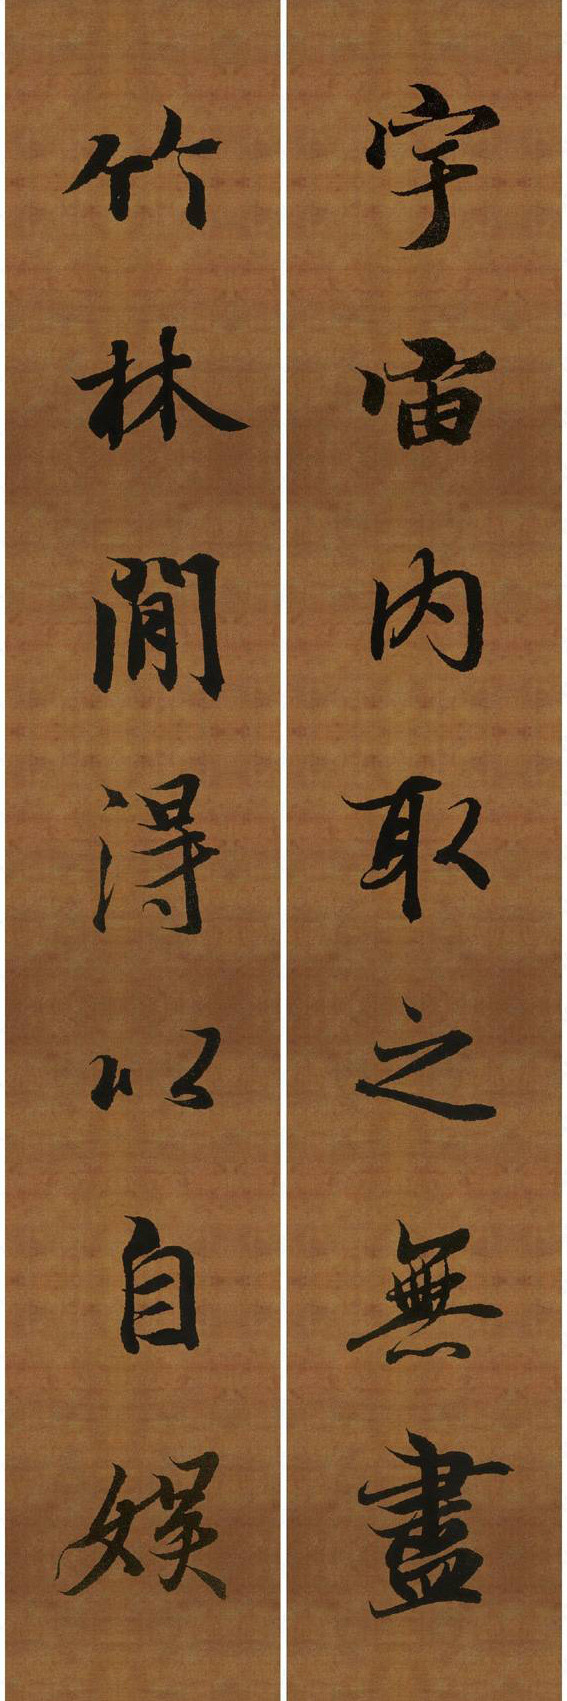 宇宙內取之無盡
竹林間得以自娛